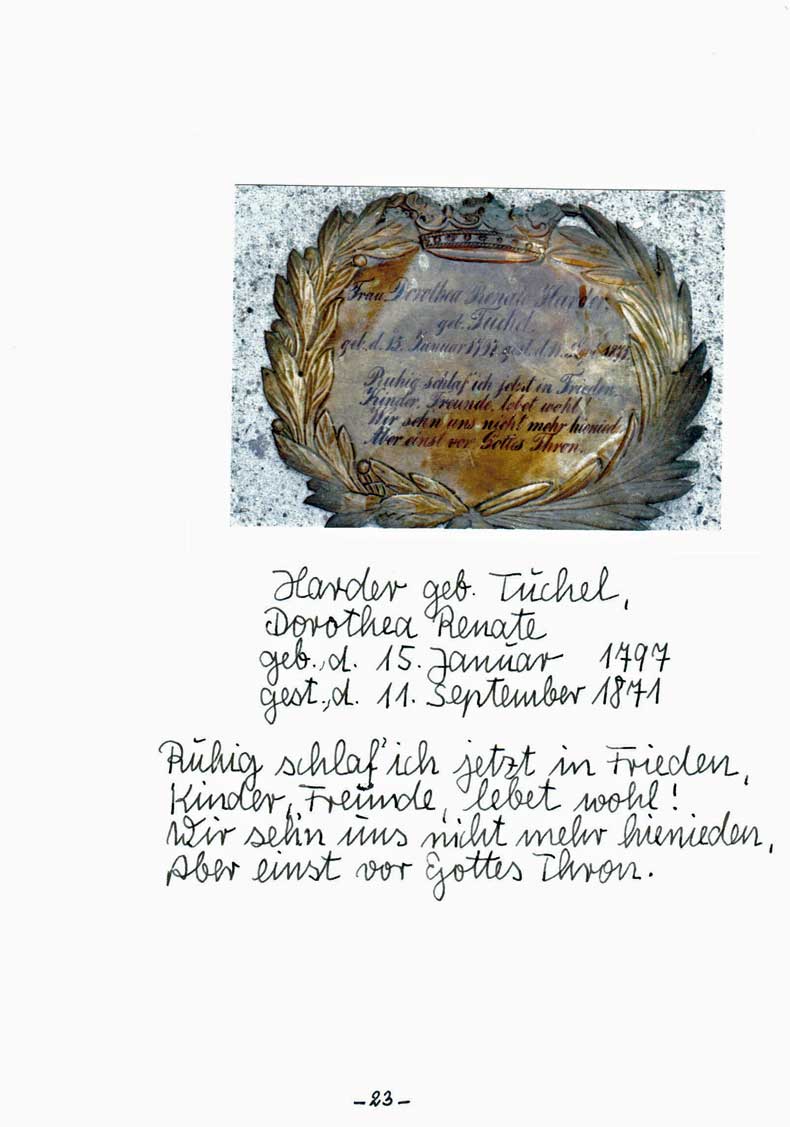 Frau Dorothea Renate Harder,
geb. Tuchel,
geb. d. 15. Januar 1797 gest. d. 11. Sept. 1871.
Ruhig schlaf' ich jetzt in Frieden,
Kinder, Freunde, lebet wohl!
Wir sehn uns nicht mehr hienied.
Aber einst vor Gottes Thron.
Harder geb. Tuchel,
Dorothea Renate
geb., d. 15. Januar 1797
gest., d. 11. September 1871
Ruhig schlaf' ich jetzt in Frieden,
Kinder, Freunde, lebet wohl!
Wir sehn uns nicht mehr hienieden,
Aber einst vor Gottes Thron.
-23-